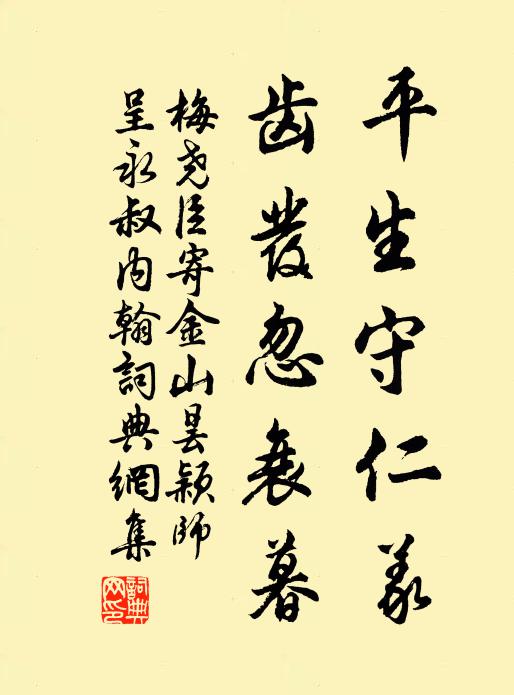 平生守仁義
齿發忽衰暮
梅尧臣寄金山昙颖師
呈永叔内翰詞典網集
詞典网印